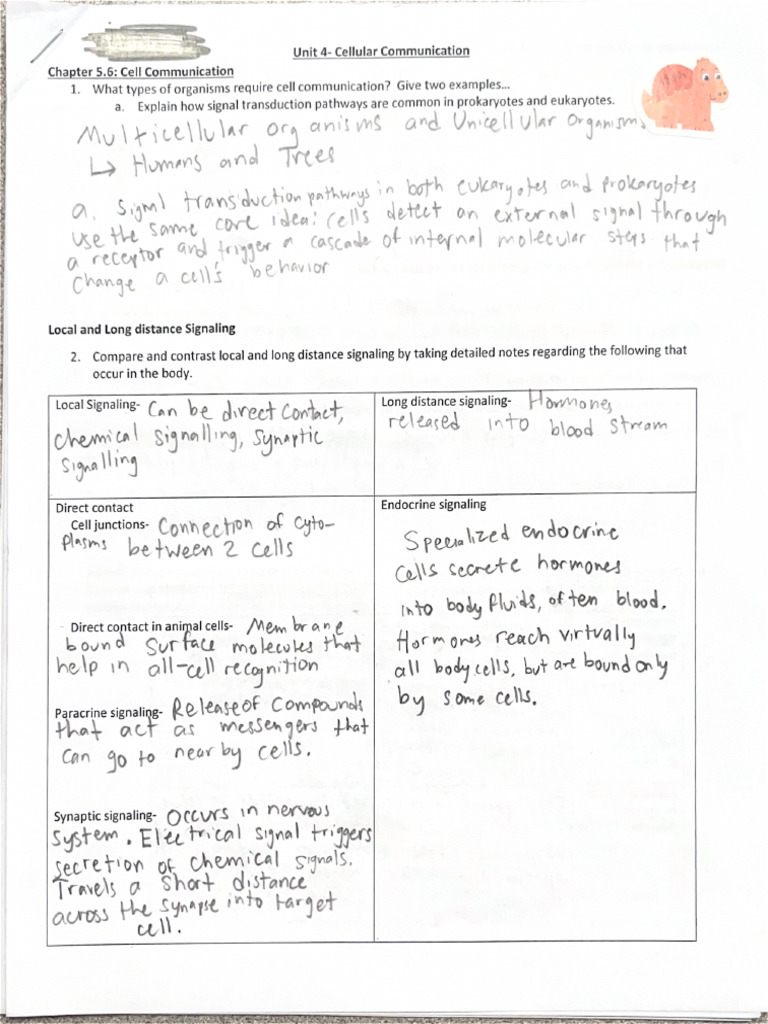 Unit 4- Cellular Communication
Chapter 5.6: Cell Communication
1. What types of organisms require cell communication? Give two examples...
a. Explain how signal transduction pathways are common in prokaryotes and eukaryotes.
Multicellular organisms and Unicellular Organisms
↳ Humans and Trees
a. Signal transduction pathways in both eukaryotes and prokaryotes
use the same core idea: cells detect an external signal through
a receptor and trigger a cascade of internal molecular steps that
change a cell's behavior
Local and Long distance Signaling
2. Compare and contrast local and long distance signaling by taking detailed notes regarding the following that
occur in the body.
Local Signaling- Can be direct contact,
chemical signalling, synaptic
signalling
Long distance signaling- Hormones
released into blood stream
Direct contact
Cell junctions- Connection of cyto-
plasms between 2 cells
Direct contact in animal cells- Membrane
bound surface molecules that
help in all-cell recognition
Paracrine signaling- Release of compounds
that act as messengers that
can go to near by cells.
Synaptic signaling- Occurs in nervous
system. Electrical signal triggers
secretion of chemical signals.
Travels a short distance
across the synapse into target
cell.
Endocrine signaling
Specialized endocrine
cells secrete hormones
into body fluids, often blood.
Hormones reach virtually
all body cells, but are bound only
by some cells.